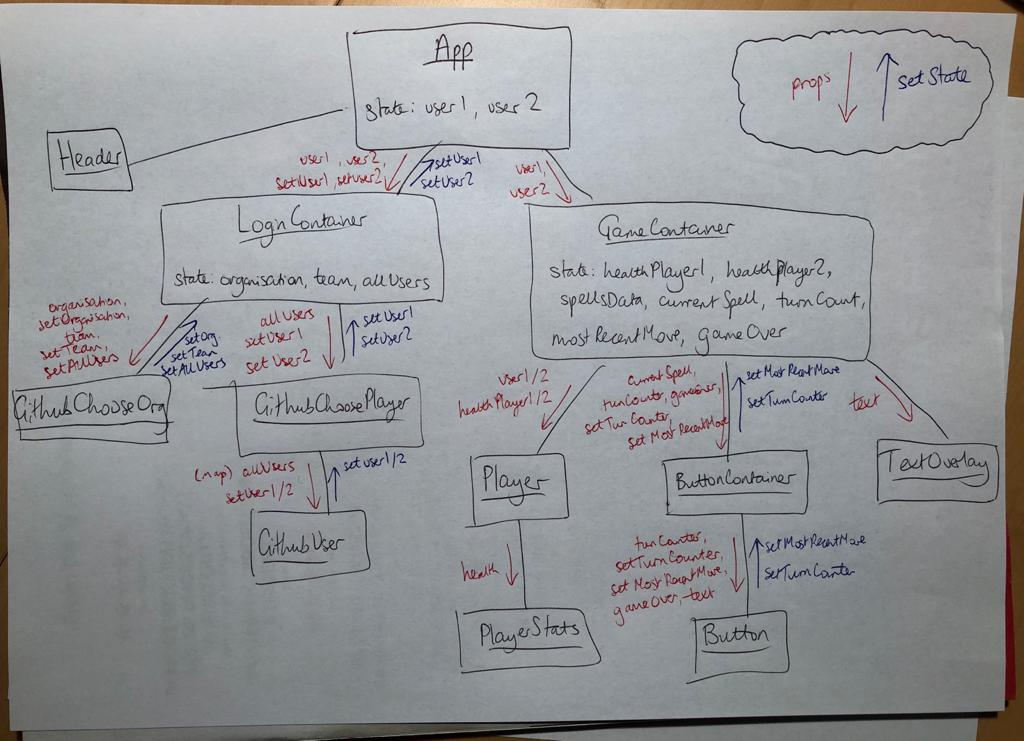 App
state: user1, user2
props
setState
Header
user1, user2,
setUser1, setUser2
setUser1
setUser2
user1,
user2
LoginContainer
state: organisation, team, allUsers
GameContainer
state: healthPlayer1, healthPlayer2,
spellsData, currentSpell, turnCount,
mostRecentMove, gameOver
organisation,
setOrganisation,
team,
setTeam,
setAllUsers
setOrg
setTeam
setAllUsers
allUsers
setUser1
setUser2
setUser1
setUser2
GithubChooseOrg
GithubChoosePlayer
user1/2
healthPlayer1/2
currentSpell,
turnCounter, gameOver,
setTurnCounter,
setMostRecentMove
setMostRecentMove
setTurnCounter
text
(map) allUsers
setUser1/2
setUser1/2
GithubUser
Player
ButtonContainer
TextOverlay
health
turnCounter,
setTurnCounter,
setMostRecentMove,
gameOver, text
setMostRecentMove
setTurnCounter
PlayerStats
Button